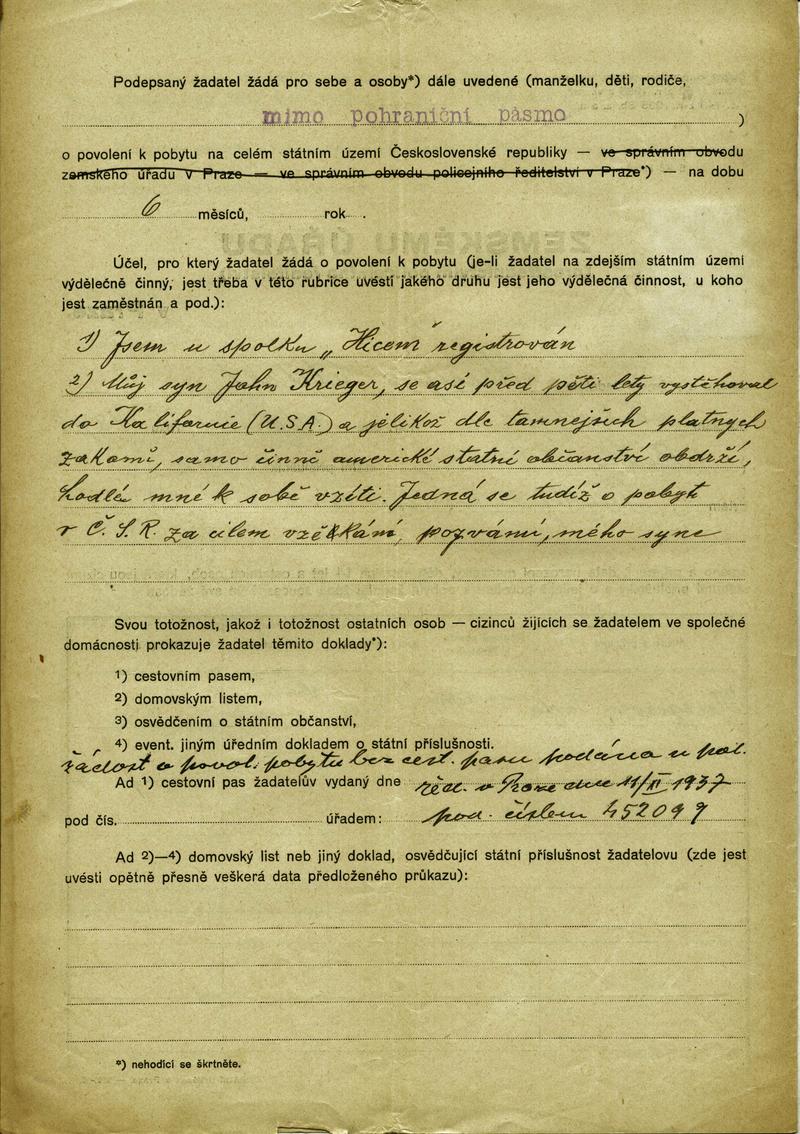 Podepsaný žadatel žádá pro sebe a osoby*) dále uvedené (manželku, děti, rodiče,
mimo pohraniční pásmo )
o povolení k pobytu na celém státním území Československé republiky — ve správním obvodu
zemského úřadu v Praze — ve správním obvodu policejního ředitelství v Praze*) — na dobu
6 měsíců, rok .
Účel, pro který žadatel žádá o povolení k pobytu (je-li žadatel na zdejším státním území
výdělečně činný, jest třeba v této rubrice uvésti jakého druhu jest jeho výdělečná činnost, u koho
jest zaměstnán a pod.):
1) Jsem u spolku „Hicem" registrován
2) Můj syn John Krieger, se asi před pěti lety vystěhoval
do Kalifornie (U.S.A.) a jelikož dle tamnejších platnych
zakonů, samo činně americké statní občanství obdrží,
hodlá mné k sobě vzíti. Jedná se tudíž o pobyt
v Č. S. R. za cilem vzěkání, pozvání, mého syna
Svou totožnost, jakož i totožnost ostatních osob — cizinců žijících se žadatelem ve společné
domácnosti prokazuje žadatel těmito doklady*):
1) cestovním pasem,
2) domovským listem,
3) osvědčením o státním občanství,
4) event. jiným úředním dokladem o státní příslušnosti.
žádost o povol. pobytu bez cest. pasu podána u pol.
Ad 1) cestovní pas žadatelův vydaný dne řed. v Praze dne 11/XI 1937
pod čís. úřadem: pod číslem 452099
Ad 2)—4) domovský list neb jiný doklad, osvědčující státní příslušnost žadatelovu (zde jest
uvésti opětně přesně veškerá data předloženého průkazu):
*) nehodící se škrtněte.